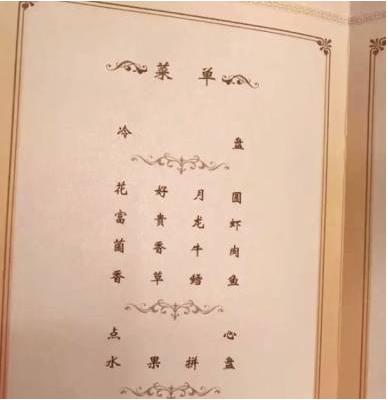 菜单
冷盘
花好月圆
富贵龙虾
菌香牛肉
香草鳕鱼
点心
水果拼盘